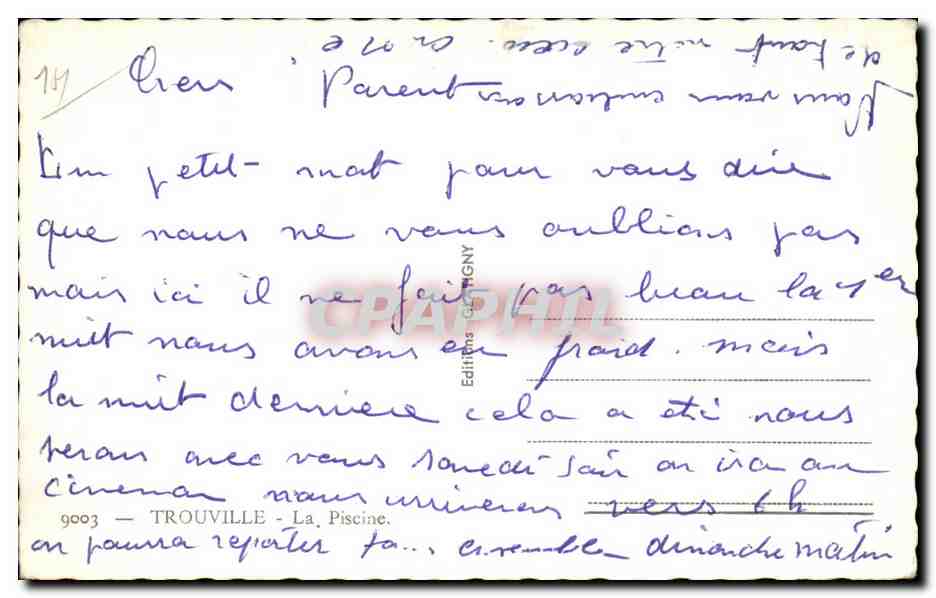 181
Chers Parents
Un petit mot pour vous dire
que nous ne vous oublions pas
mais ici il ne fait pas beau la 1er
nuit nous avons eu froid. mais
la nuit derniere cela a été nous
serons avec vous samedi soir on ira au
cinema nous arriverons vers 6h
on pourra repartir ensemble dimanche matin
Nous vous embrassons
de tout notre coeur.
9003 — TROUVILLE - La Piscine.
Editions GUIGNY
CPAPHIL